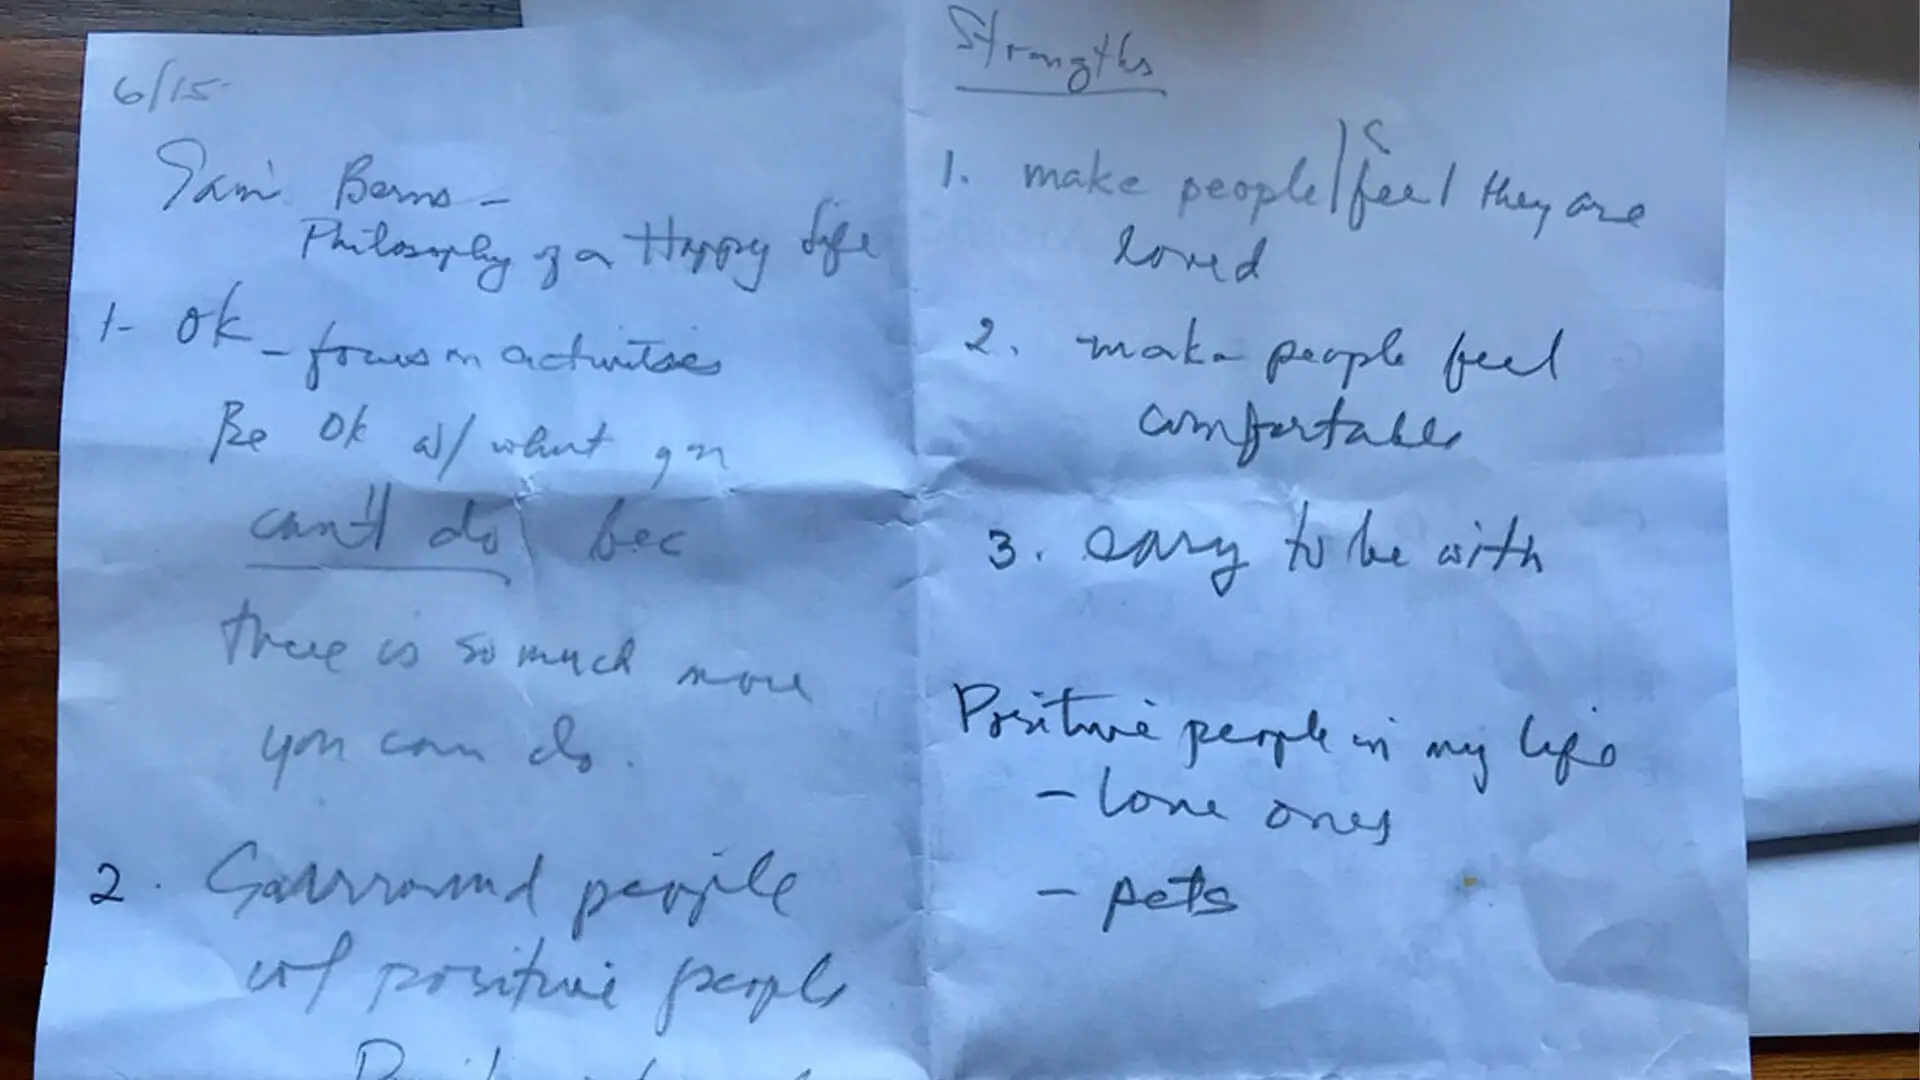 6/15
Sam Berns -
Philosophy of a Happy life
1- OK - focus on activities
Be OK w/ what you
can't do bec
there is so much more
you can do.
2. Surround people
w/ positive people
Strengths
1. make people feel they are
loved
2. make people feel
comfortable
3. easy to be with
Positive people in my life
- love ones
- pets